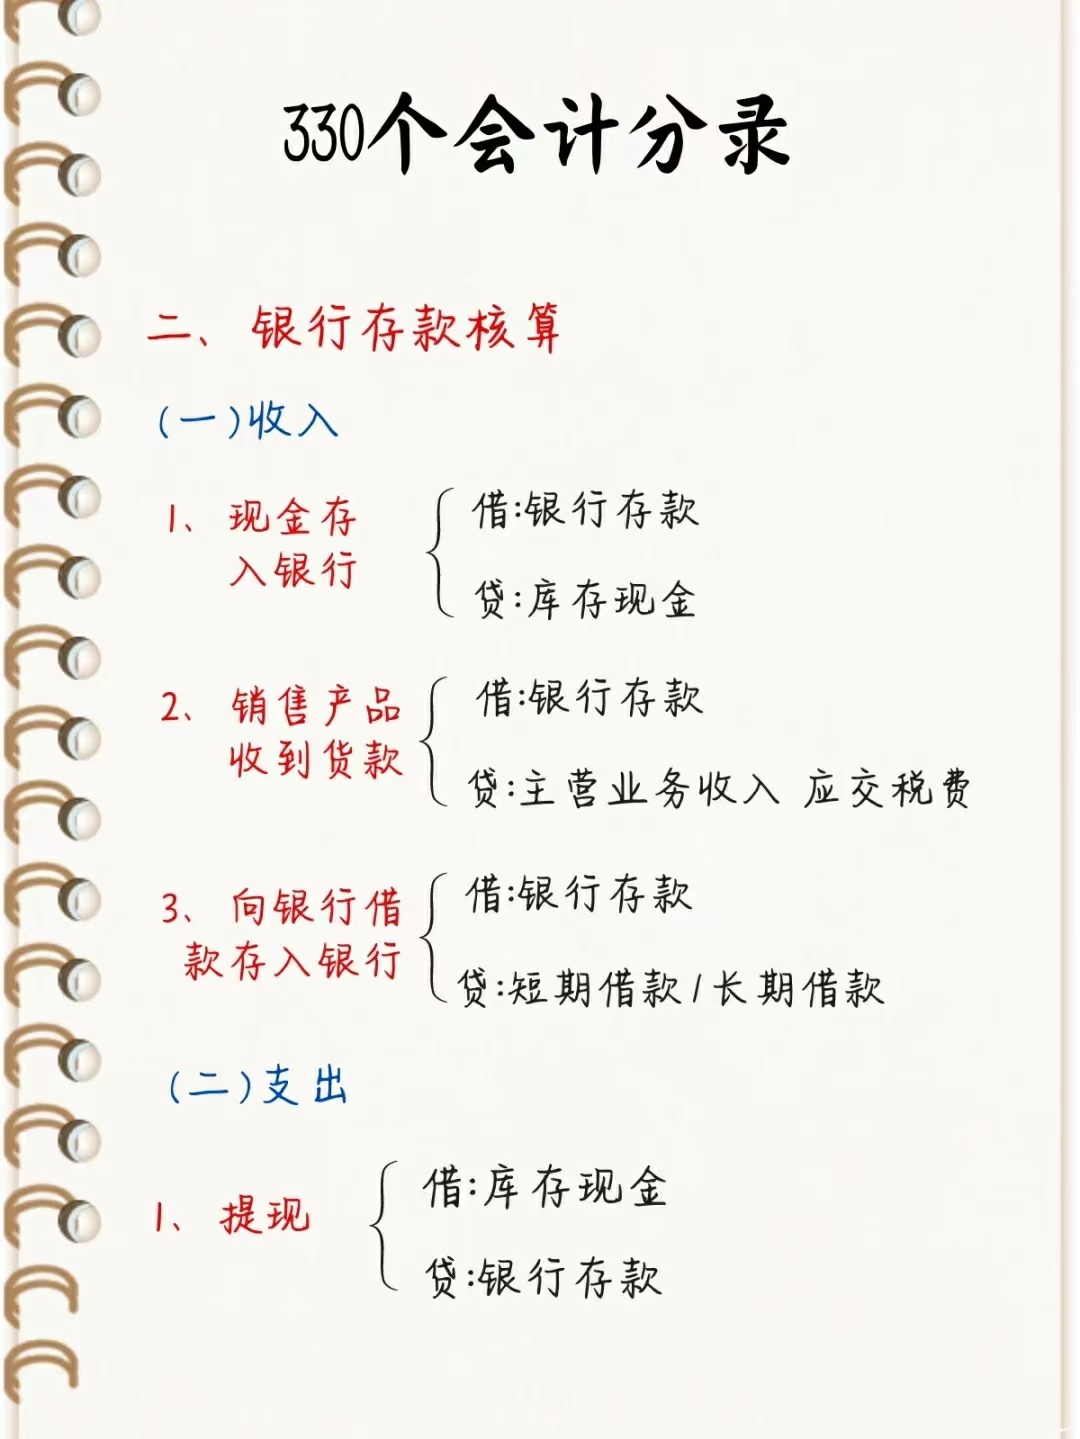 330个会计分录
二、银行存款核算
(一)收入
1、现金存
入银行
借:银行存款
贷:库存现金
2、销售产品
收到货款
借:银行存款
贷:主营业务收入 应交税费
3、向银行借
款存入银行
借:银行存款
贷:短期借款/长期借款
(二)支出
1、提现
借:库存现金
贷:银行存款